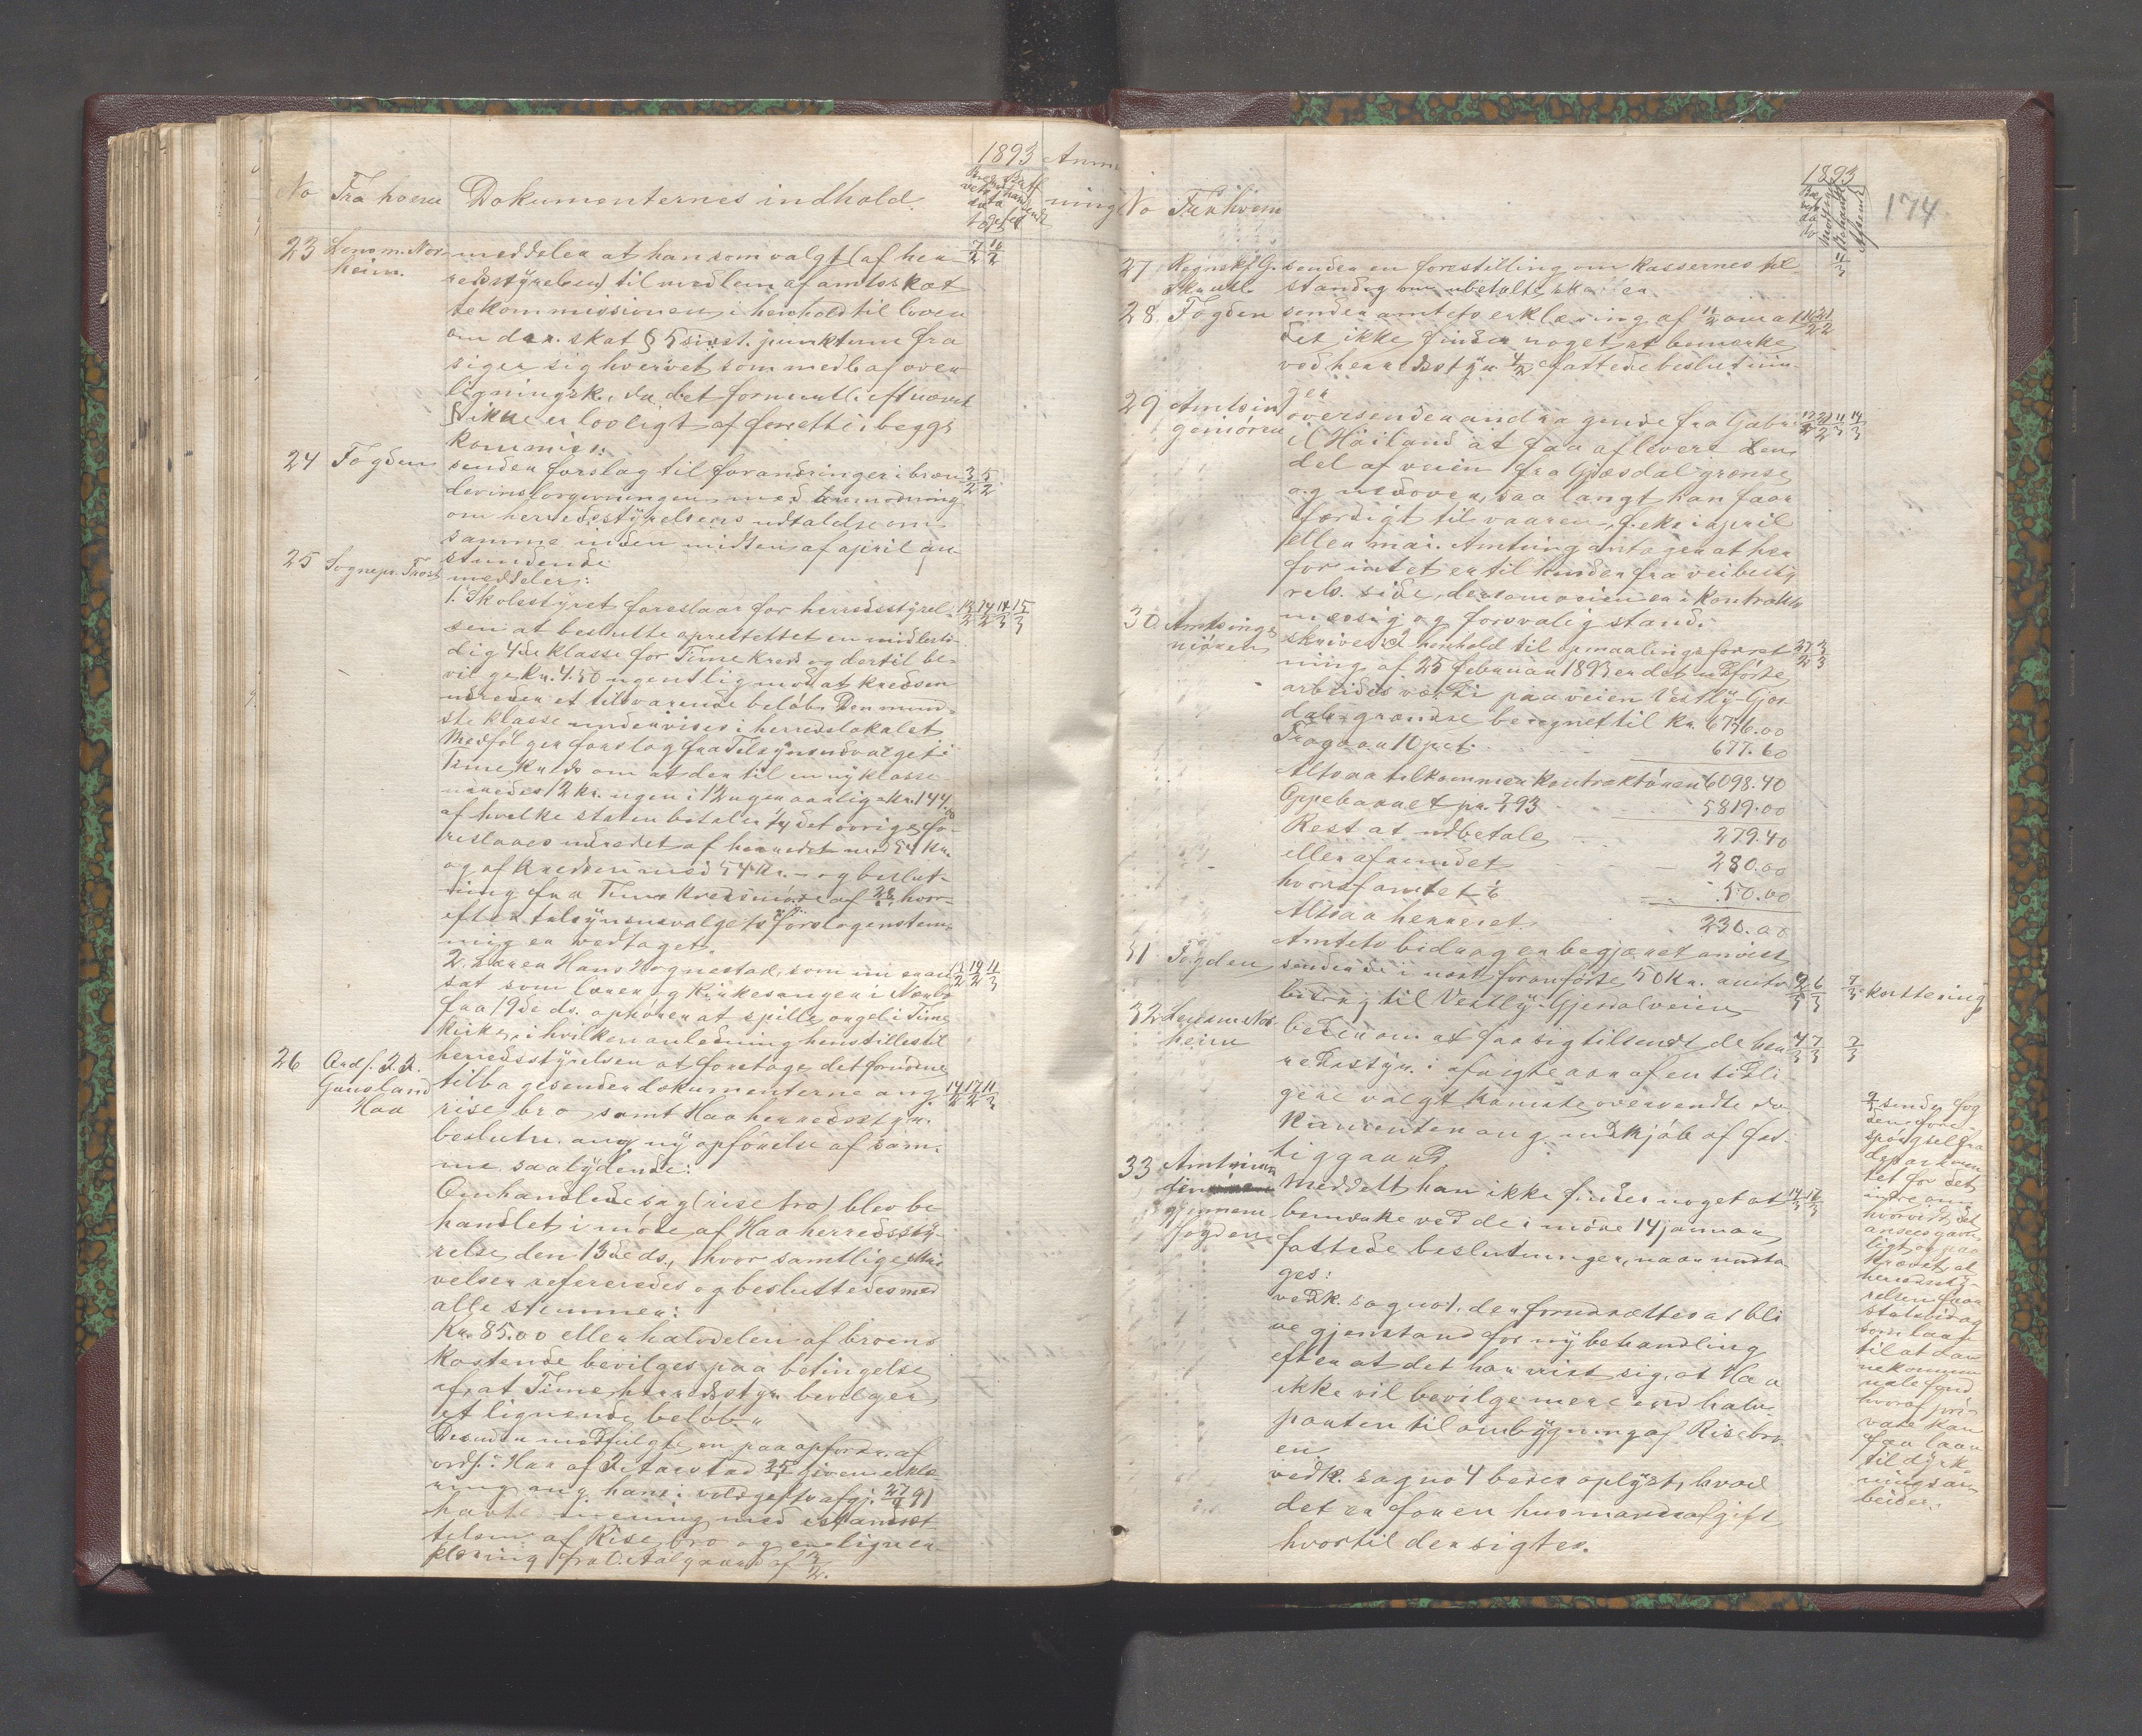 1893 Anm
No Fra hvem Dokumenternes indhold. ning
23 Lensm. Nor- meddeler at han som valgt (af her 7/2 16/2
heim. redsstyrelsen) til medlem af amtsskat
tekommissionen i henhold til loven
om der. skat § 5 sidst. punktum fra
siger sig hvervet som medl. af over
ligningsk., da det formentl. eft nævnt
§ ikke er lovligt at forrette i begge
kommis:
24 Fogden sender forslag til forandringer i bræn 3/2 5/2
devinslovgivningen med anmodning
om herredsstyrelsens udtalelse om
samme inden midten af april an-
stundende
25 Sognepr. Trost meddeler:
1. Skolestyret foreslaar for herredsstyrel- 13/2 14/2 11/3 15/3
sen at beslutte oprettettet en midlerti-
dig 4de klasse for Time kreds og dertil be-
vilge Kr. 4.50 ugentlig mod at kredsen
udreder et tilsvarende beløb. Den nund-
ste klasse undervises i herredslokalet
Medfølger forslag fra Tilsynsudvalget i
Time kreds om at der til en ny klasse
udredes 12 kr. ugen i 12 uger aarlig = Kr. 144.00
af hvilke staten betaler 1/4 det øvrige fo-
reslaaes udredet af herredet med 54 Kr.
og af kredsen med 54 Kr. – og beslut-
ning fra Time kredsmøde af hvor-
efter tilsynsvalgets forslag enstem-
mig er vedtaget.
2. Lærer Hans Hognestad, som nu er an 13/2 14/2 11/3
sat som lærer og Kirkesanger i Nærbø
fra 19de ds. ophører at spille orgel i Time
kirke, i hvilken anledning henstilles til
herredsstyrelsen at foretage det fornødne
26 Ordf. tilbagesender dokumenterne ang. 14/2 17/2 11/3
Gausland rise bro samt Haa herredsstyr.
Haa beslutn. ang ny opførelse af sam-
me saalydende:
Omhandlede sag (rise bro) blev be
handlet i møde af Haa herredssty-
relse den 13de ds., hvor samtlige skri
velser refereredes og besluttedes med
alle stemmer:
Kr. 85.00 eller halvdelen af broens
kostende bevilges paa betingelse
af, at Time herredsstyr. bevilger
et lignende beløb."
Desuden medfulgte en paa opfordr. af
ordf. i Haa af Aarstad given erklæ
ring ang. hans i voldgifts afgj. 27/4 91
havte mening med istandsæt-
telsen af Rise bro og en lign er-
klæring fra O. Aalgaard af 3/2.
1893
174
No Fra hvem
27 Regnskf. G. sender en forestilling om kassernes til- 11/3
Skrudl. stand og om ubetalte skatter
28 Fogden sender amtets erklæring af 11/2 om at 16/2 21/2
det ikke finder noget at bemærke
ved herredsstyr. 4/2 fattede beslutnin-
ger
29 Amtsin oversender andragende fra Gabri
geniøren el Høiland at faa aflevert den
del af veien fra Gjesdal grænse
og nedover, saa langt han faar
færdigt til vaaren, f. eks. i april
eller mai. Amtsing. antager at her
for intet er til hinder fra veibesty
rels. side, dersom veien er i kontrakts
mæssig og forsvalig stand.
30. Amtsinge skriver: I henhold til opmaalingsforret 27/2 3/3
niøren ning af 25 februar 1893 er det udførte
arbeides værdi paa veien Vestly-Gjes
dals grændse beregnet til Kr. 6776.00
Fragaar 10 pct. 677.60
Altsaa tilkommer kontraktøren 6098.40
Oppebaaret pr. 7/1 93 5819.00
Rest at udbetale 279.40
eller afrundet 280.00
hvoraf amtet 1/6 50.00
Altsaa herredet 230.00
Amtets bidrag er begjæret anvist
31 Fogden sender de i næst foranførte 50 Kr. amts 2/3 6/3 7/3 kvittering
bidrag til Vestly-Gjesdalveien
32 Lensm. Nor- beder om at faa sig tilsendt de her 4/3 7/3 7/3
heim redsstyr. i afvigte aar af en tidli-
gere valgt komite oversendte do
kumenter ang. indkjøb af fat-
tiggaard
33 Amtman Meddelt han ikke finder noget at 14/3 17/3
den
gjennem bemærke ved de i møde 14 januar
fogden fattede beslutninger, naar undta
ges:
vedk. sag no 1. der forudsættes at bli
ve gjenstand for ny behandling
efter at det har vist sig, at Haa
ikke vil bevilge mere end halv
parten til ombygning af Risebro-
en
vedk. sag no 4 beder oplyst, hvad
det er for en husmandsafgift,
hvortil der sigtes.
9/3 sender fog
den fore-
spørgsel fra
departemen
tet for det
indre om
hvorvidt det
ansees gavn
ligt og paa
krævet at
herredssty-
relsen faar
statsbidrag
som laan
til at dan
ne kommu
nale fond
hvoraf pri-
vate kan
faa laan
til dyrk-
ningsar
beider.